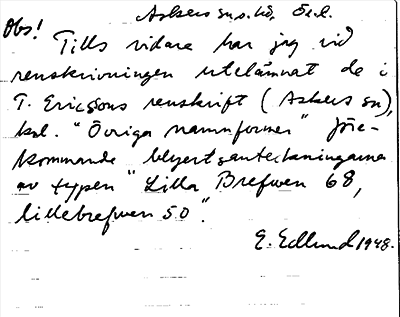 Askers sn.s hd, Ör.l.
Obs!
Tills vidare har jag vid
renskrivningen utelämnat de i
T. Ericssons renskrift (Askers sn),
kol. "Övriga namnformer" före-
kommande blyertsanteckningarna
av typen "Lilla Brefwen 68,
lillebrefwen 50".
E. Edlund 1948.